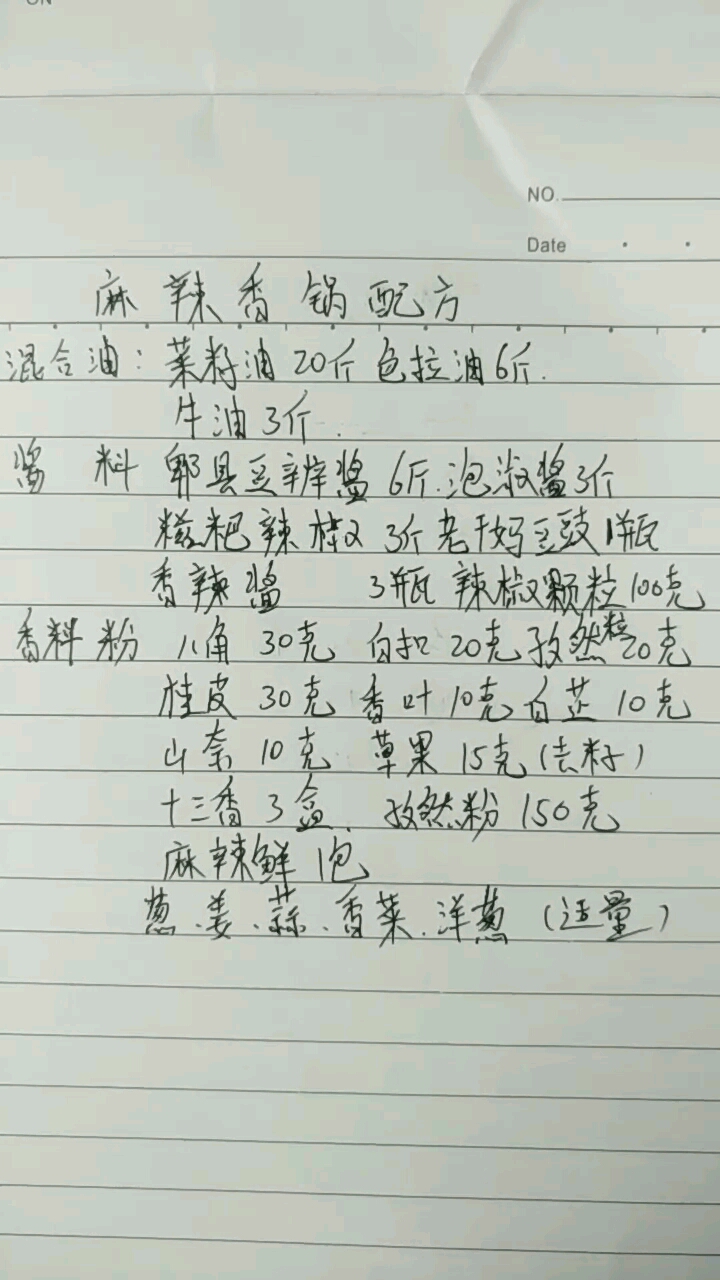 ON
NO.
Date
麻辣香锅配方
混合油：菜籽油20斤 色拉油6斤.
牛油3斤.
酱料 郫县豆瓣酱6斤.泡椒酱3斤
糍粑辣椒3斤老干妈豆豉1瓶
香辣酱 3瓶 辣椒颗粒100克
香料粉 八角30克 白扣20克孜然粒20克
桂皮30克 香叶10克白芷10克
山奈10克 草果15克(去籽)
十三香3盒. 孜然粉150克
麻辣鲜1包
葱.姜.蒜.香菜.洋葱(适量)